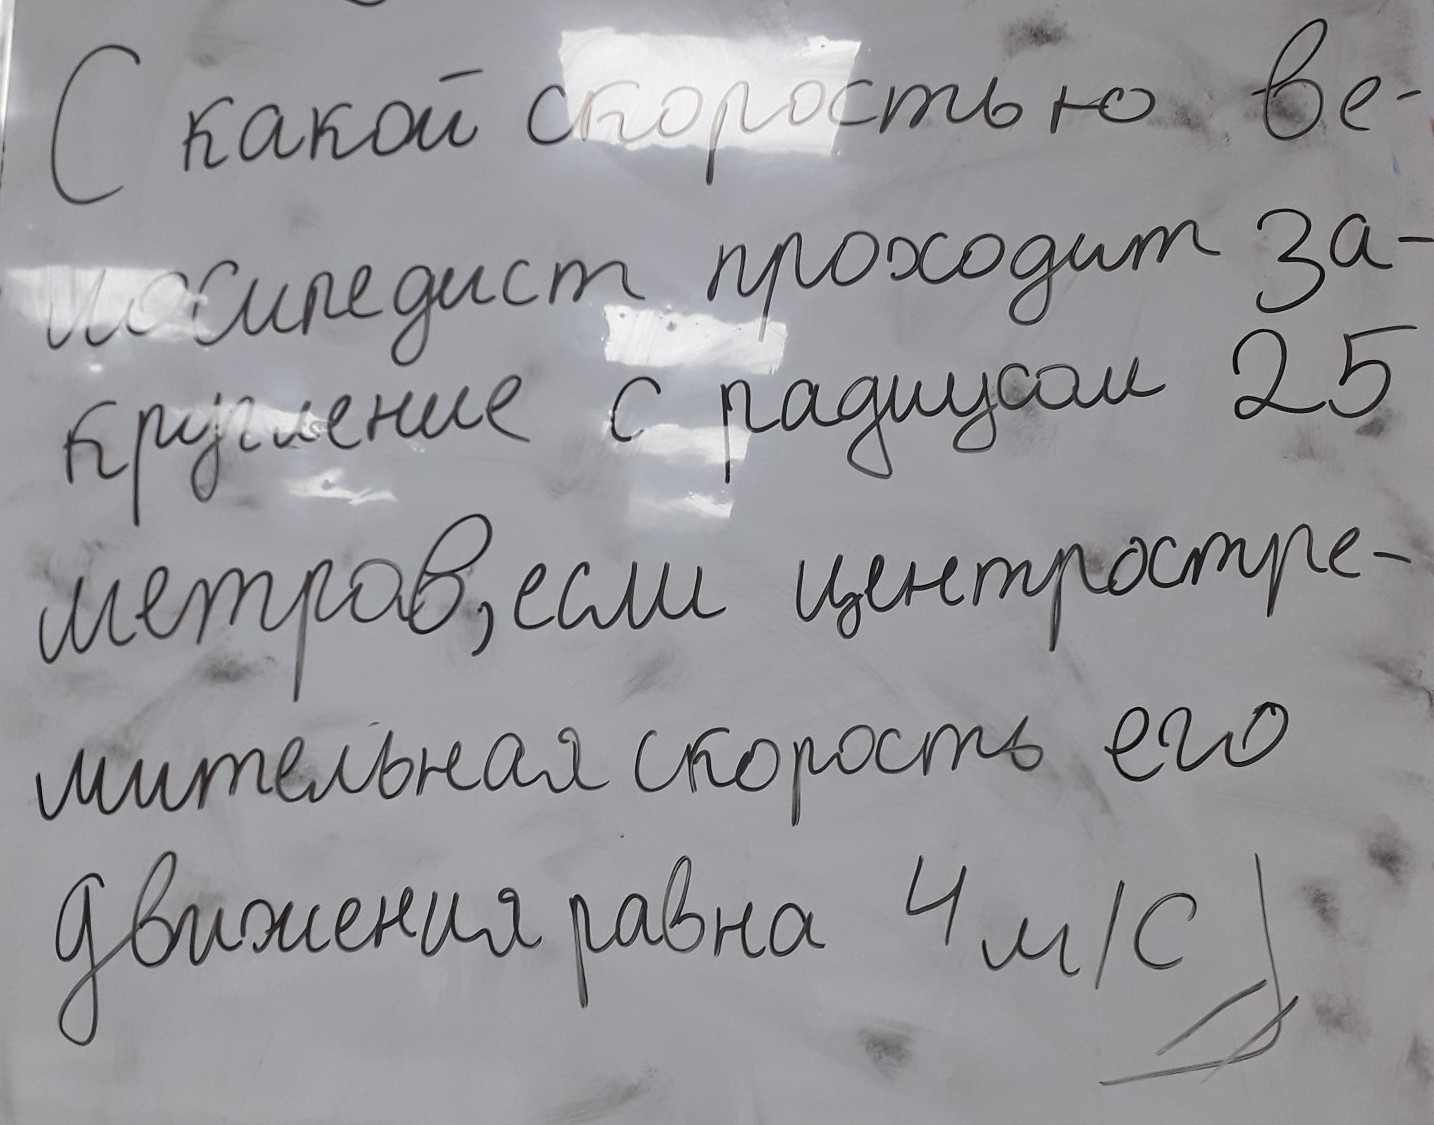 С какой скоростью ве-
лосипедист проходит за-
кругление с радиусом 25
метров, если центростре-
мительная скорость его
движения равна 4 м/с